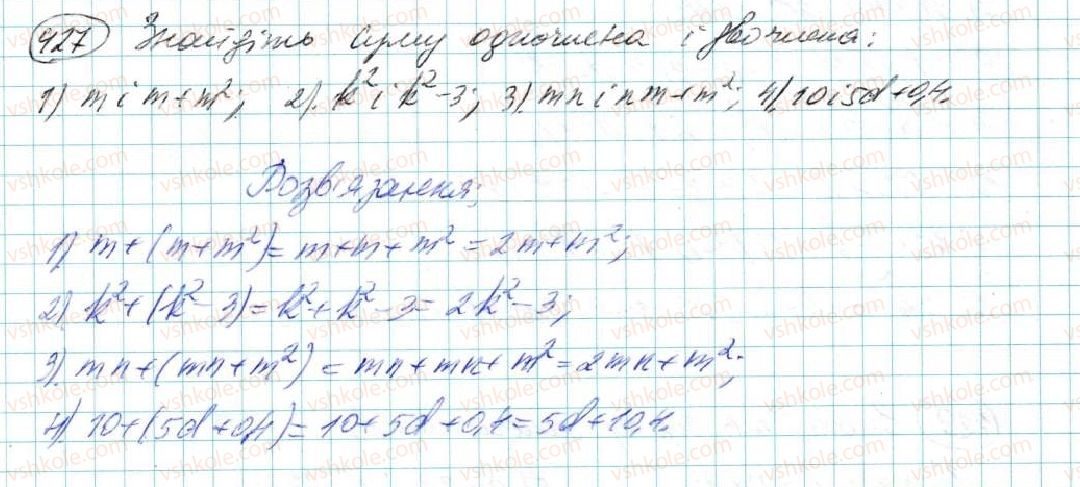 427 Знайдіть суму одночлена і двочлена:
1) m і m+m²; 2) k² і k²-3; 3) mn і nm+m²; 4) 10 і 5d+0,4.
Розв'язання:
1) m+(m+m²)=m+m+m²=2m+m²;
2) k²+(k²-3)=k²+k²-3=2k²-3;
3) mn+(mn+m²)=mn+mn+m²=2mn+m²;
4) 10+(5d+0,4)=10+5d+0,4=5d+10,4.
vshkole.com